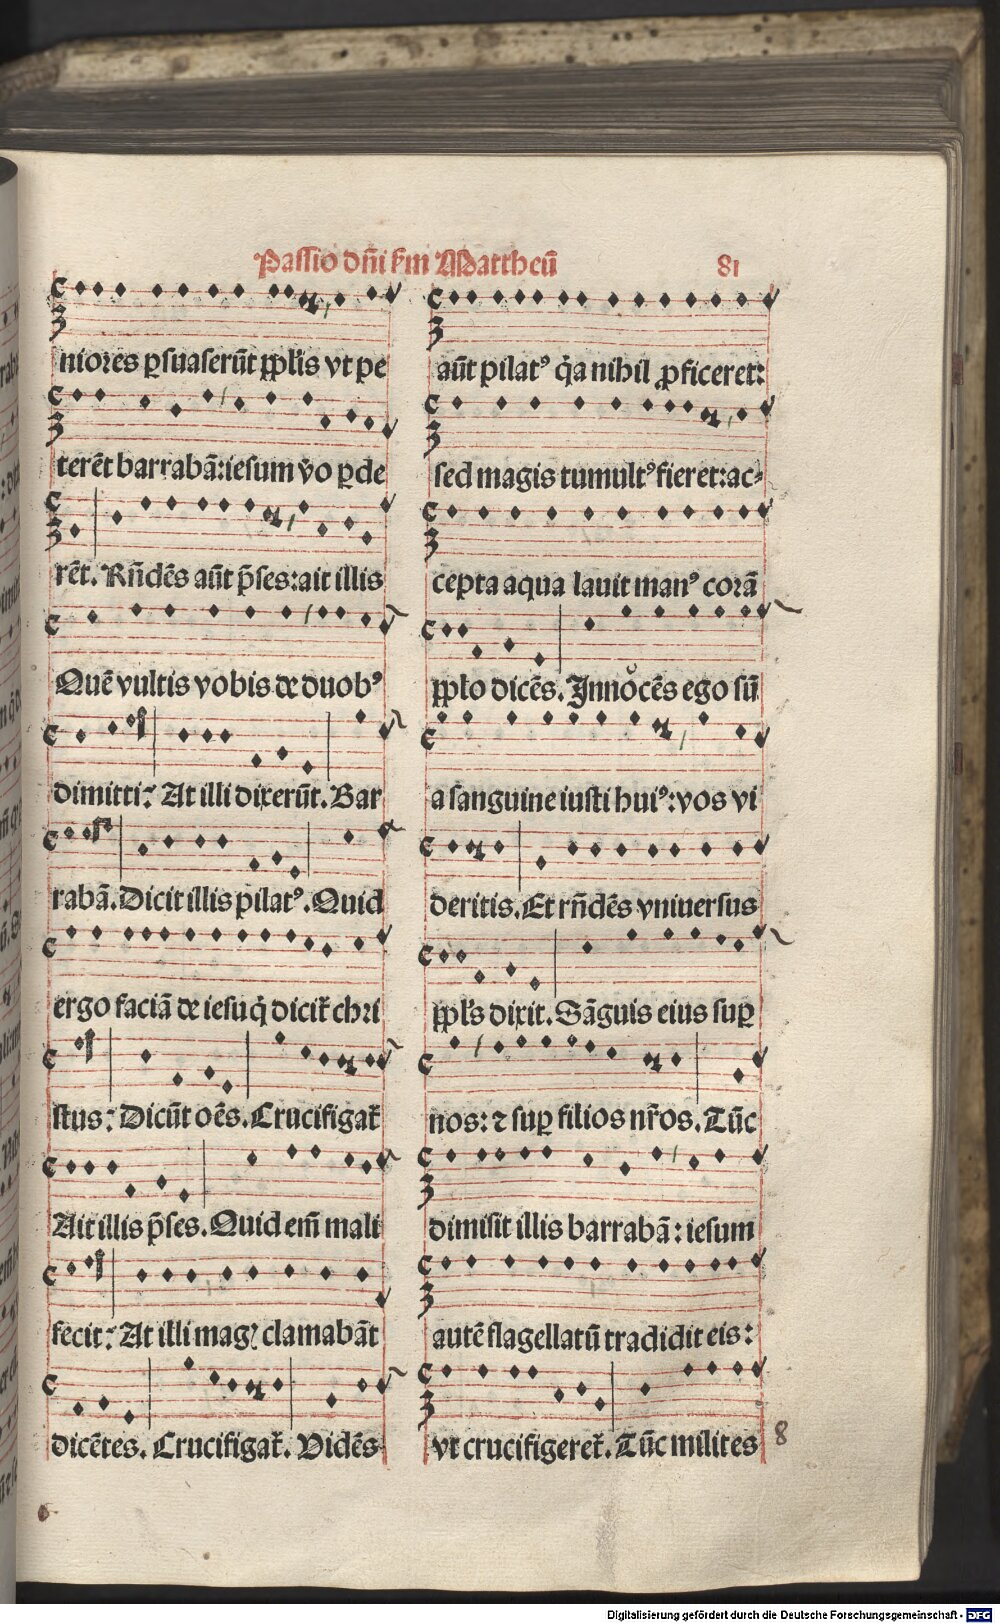 Passio dñi ẜm Mattheũ 81
niores ꝑsuaserũt ppl'is vt pe
terẽt barrabã: iesum v̾o ꝑde
rẽt. Rñdẽs aũt p̃ses: ait illis
Quẽ vultis vobis de duobꝰ
dimitti: At illi dixerũt. Bar
rabã. Dicit illis pilatꝰ. Quid
ergo faciã de iesu q̇ dicit᷑ chri
stus: Dicũt oẽs. Crucifigat᷑
Ait illis p̃ses. Quid em̃ mali
fecit: At illi mag̾ clamabãt
dicẽtes. Crucifigat᷑. Vidẽs
aũt pilatꝰ q̇a nihil ꝓficeret:
sed magis tumultꝰ fieret: ac⸗
cepta aqua lauit manꝰ corã
pplo dicẽs. Innocẽs ego sũ
a sanguine iusti huiꝰ: vos vi
deritis. Et rñdẽs vniuersus
ppl's dixit. Sãguis eius suꝑ
nos: ⁊ suꝑ filios nr̃os. Tũc
dimisit illis barrabã: iesum
autẽ flagellatũ tradidit eis:
vt crucifigeret᷑. Tũc milites
8
Digitalisierung gefördert durch die Deutsche Forschungsgemeinschaft - DFG